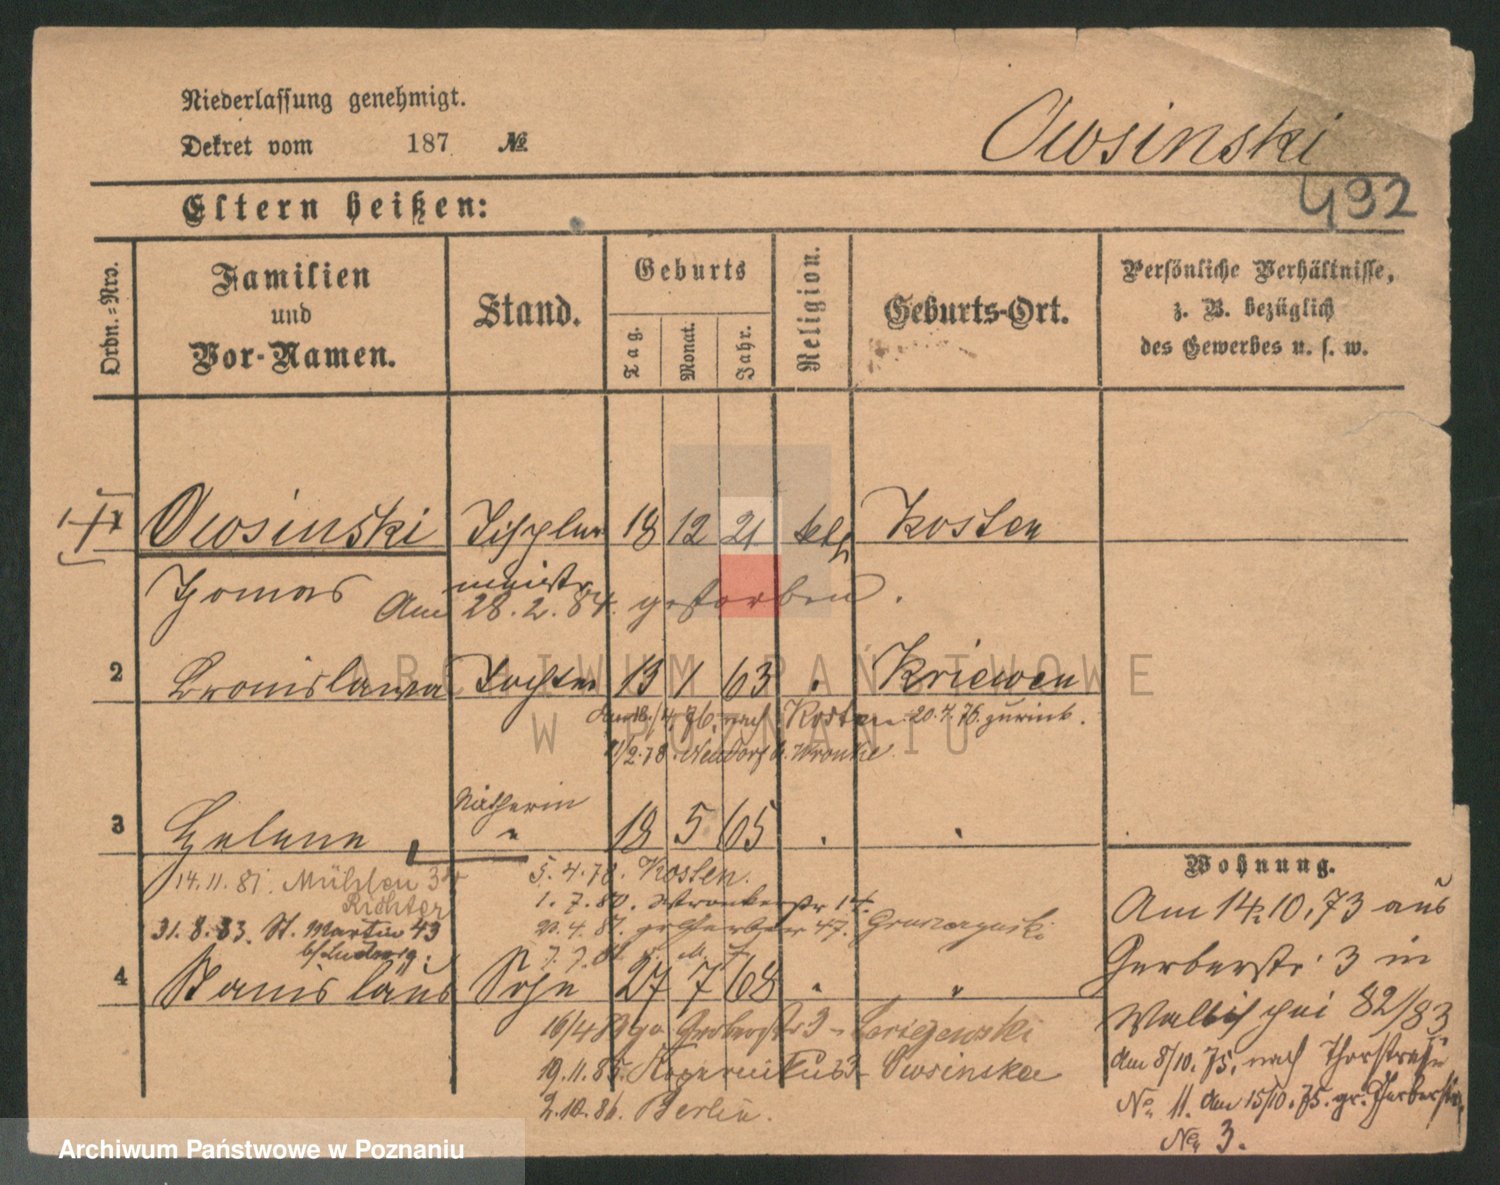 Niederlassung genehmigt.
Dekret vom 187 №
Owsinski
492
Eltern heißen:
Ordn.=Nro.
Familien und Vor-Namen.
Stand.
Geburts
Tag.
Monat.
Jahr.
Religion.
Geburts-Ort.
Persönliche Verhältnisse,
z. B. bezüglich
des Gewerbes u. s. w.
1 Owsinski Tischler 18 12 21 kth Kosten
Thomas meister
Am 28.2.84. gestorben.
2 Bronislawa Tochter 13 1 63 Kriewen
Am 18./4. 76. nach Kosten. 20.4.76. zurück.
2.78. Neudorf b. Wronke
Nätherin
3 Helene " 18 5 65 "
Wohnung.
14.11.81. Mühlen 3
Richter
5.4.78. Kosten.
1.7.80. Wronkerstr 14.
31.8.83. St. Martin 43
b/Ludwig.
20.4.81. gr Gerber 47.
4 Stanislaus Sohn 27 7 68 " "
16/4 Gerberstr 3
19.11.85. Kopernikus 3 - Owsinska
2.10.86. Berlin.
Am 14. 10. 73 aus
Gerberstr. 3 in
Wallischei 82/83
Am 8/10. 75. nach Thorstraße
No. 11. Am 15/10. 75. gr. Gerberstr.
No. 3.
ARCHIWUM PAŃSTWOWE
W POZNANIU
Archiwum Państwowe w Poznaniu